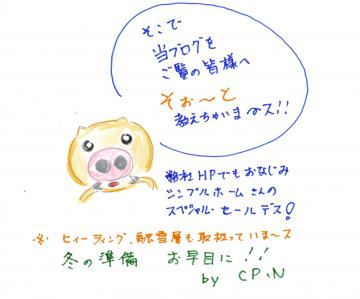 そこで
当ブログを
ご覧の皆様へ
そぉ〜と
教えちゃいま〜ス!!
弊社HPでもおなじみ
シンプルホームさんの
スペシャル・セールデス!
※ ヒィーティング、融雪層も取扱っていま〜ス
冬の準備 お早目に!!
by CP.N